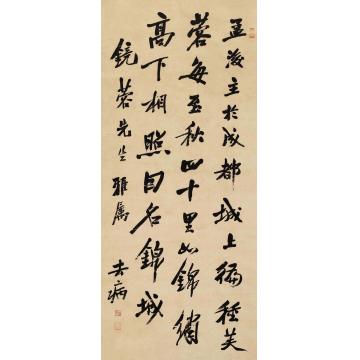 孟后主於成都城上徧種芙
蓉每至秋四十里如錦繡
高下相照因名錦城
鏡蓉先生雅屬 去病